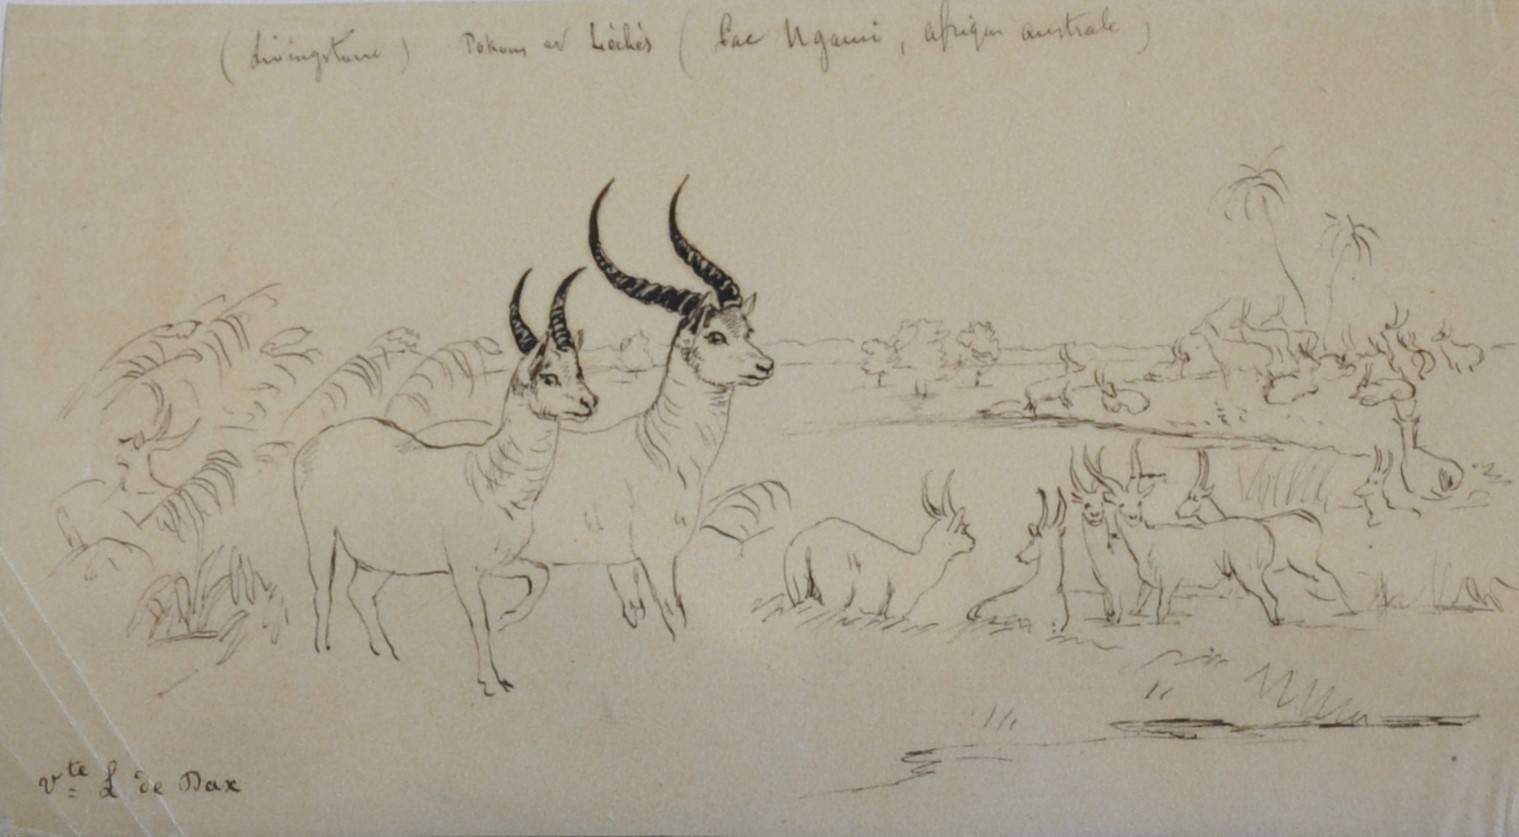 (Livingstone) Pokous et Léchés (Lac Ngami, afrique australe)
Vte L de Dax